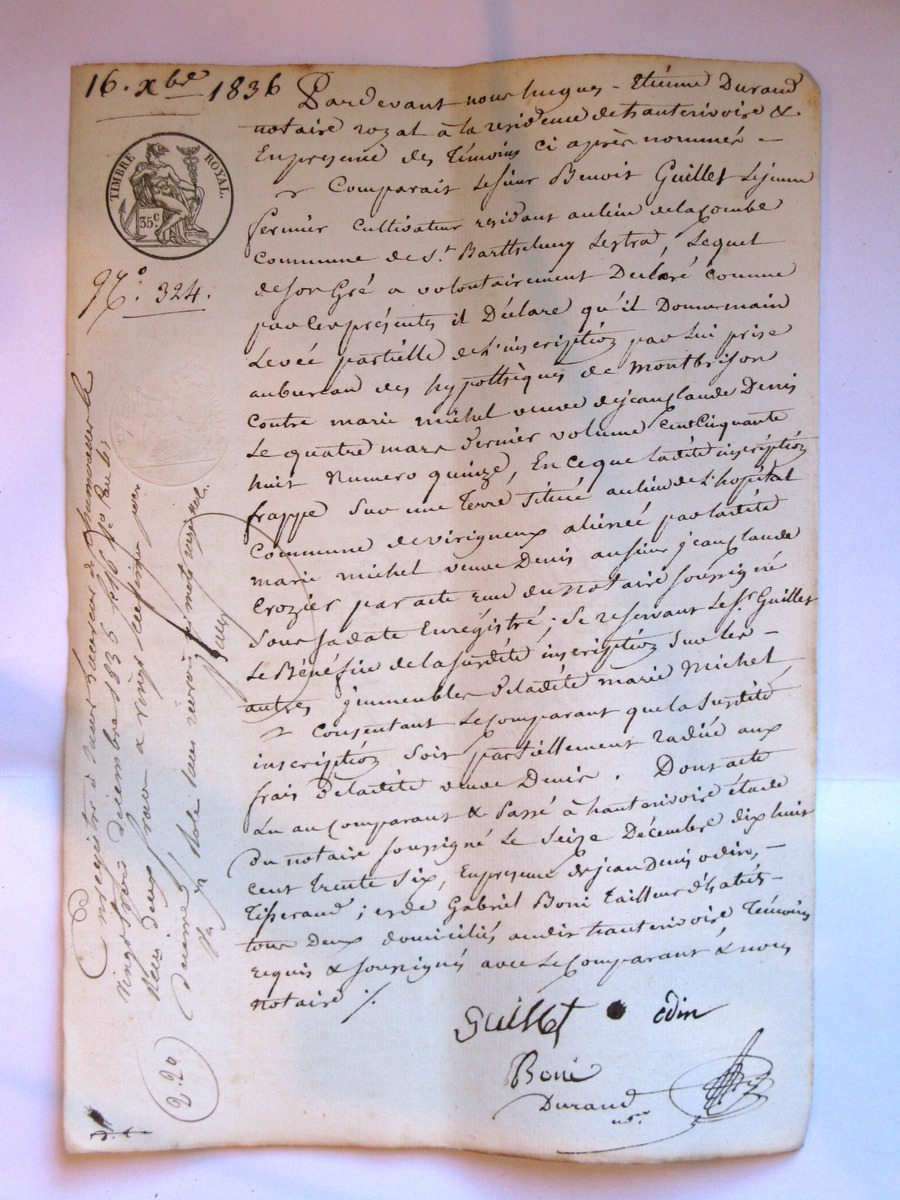 16. Xbre 1836
TIMBRE ROYAL.
35c.
No. 324.
Pardevant nous hugues - Etiénne Durand
notaire royal à la residence de hauterivoire &
En presence des Témoins ci après nommés -
Comparait Le sieur Benoit Guillet Le jeune
fermier Cultivateur residant au lieu de la Combe
Commune de St. Barthelemy Lestra, Lequel
de son Gré a volontairement Declaré Comme
par Ces présentes il Déclare qu'il Donne main
Levée partielle de L'inscription par Lui prise
au bureau des hypothèques de Montbrison
Contre marie michel veuve de jean Claude Denis
Le quatre mars dernier volume Cent Cinquante
huit Numero quinze, En ce que ladite inscription
frappe Sur une Terre située au lieu de L'hopital
Commune de virigneux aliénée par ladite
marie michel veuve Denis au sieur jean Claude
Crozier par acte reçu du notaire soussigné
Sous sa date Enregistré; Se reservant Le Sr. Guillet
Le Bénéfice de la Susdite inscription Sur les -
autres immeubles de ladite marie Michel
Consentant Le Comparant que la Susdite
inscription soit partiellement radiée aux
frais de ladite veuve Denis. Dont acte
Lu au Comparant & Passé à hauterivoire étude
Du notaire soussigné Le Seize Décembre dix huit
Cent trente Six, En presence de jean Denis odin, -
Tisserand; et de Gabriel Boni Tailleur d'habits -
tous Deux domiciliés audit hauterivoire Témoins
requis & soussignés avec Le Comparant & nous
notaire
Guillet odin
Boni
Durand
nore
Enregistré à
vingt Décembre 1836
deux francs
2.20